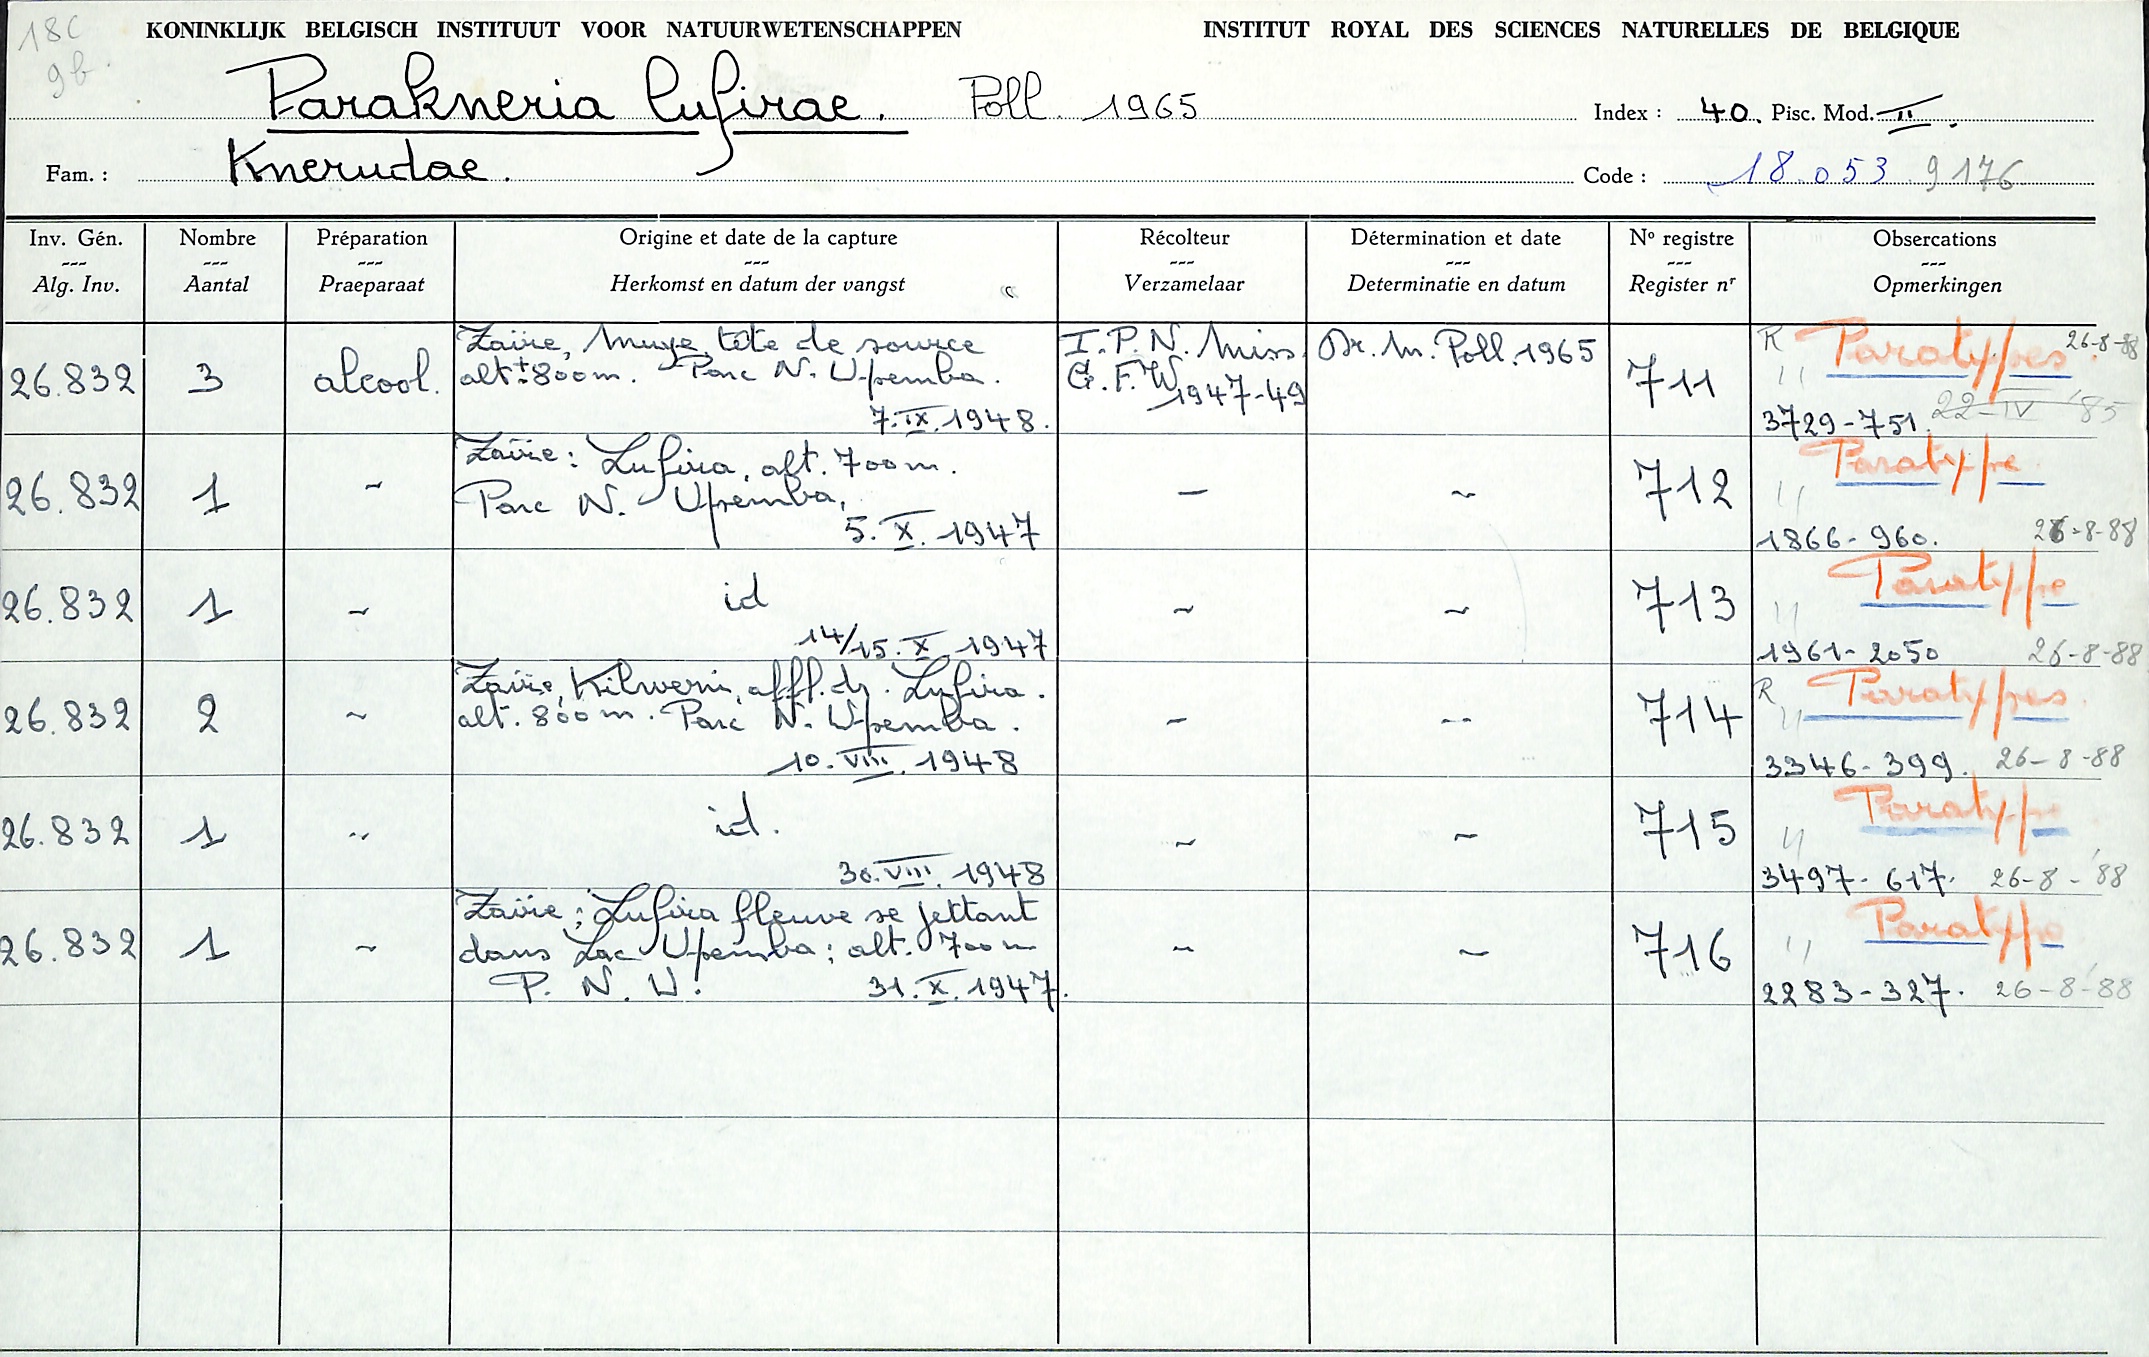 18C
9b.
KONINKLIJK BELGISCH INSTITUUT VOOR NATUURWETENSCHAPPEN INSTITUT ROYAL DES SCIENCES NATURELLES DE BELGIQUE
Parakneria lufirae. Poll. 1965 Index : 40. Pisc. Mod. II.
Fam. : Kneriidae. Code : 18.053.9176
Inv. Gén. Nombre Préparation Origine et date de la capture Récolteur Détermination et date Nº registre Obsercations
--- --- --- --- --- --- --- ---
Alg. Inv. Aantal Praeparaat Herkomst en datum der vangst Verzamelaar Determinatie en datum Register nr Opmerkingen
Zaïre, Muye, tête de source I.P.N. Miss. Dr. M. Poll. 1965 R Paratypes. 26-8-88
26.832 3 alcool. alt ± 800m. Parc N. Upemba. G.F.W 1947-49 711 "
7.IX.1948. 3729-751. 22-IV '85
Zaïre : Lufira, alt. 700m. Paratype
26.832 1 ~ Parc N. Upemba, — ~ 712 "
5.X.1947 1866-960. 26-8-88
26.832 1 ~ id ~ ~ 713 " Paratype
14/15.X.1947 1961-2050 26-8-88
Zaïre, Kilwezi, affl. dr. Lufira. R Paratypes.
26.832 2 ~ alt. 800m. Parc N. Upemba. ~ -- 714 "
10.VIII.1948 3346-399. 26-8-88
26.832 1 ~ id. ~ ~ 715 " Paratype
30.VIII.1948 3497-617. 26-8-'88
Zaïre ; Lufira fleuve se jettant Paratype
26.832 1 ~ dans Lac Upemba ; alt. 700m ~ ~ 716 "
P.N.U. 31.X.1947. 2283-327. 26-8-'88